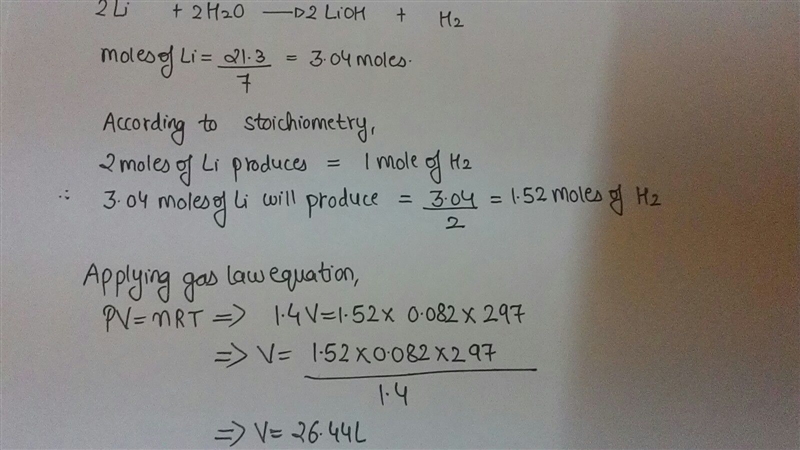 2Li + 2H2O —D 2LiOH + H2
moles of Li = 21.3 = 3.04 moles.
7
According to stoichiometry,
2 moles of Li produces = 1 mole of H2
∴ 3.04 moles of Li will produce = 3.04 = 1.52 moles of H2
2
Applying gas law equation,
PV = nRT => 1.4V = 1.52 × 0.082 × 297
=> V = 1.52 × 0.082 × 297
1.4
=> V = 26.44L